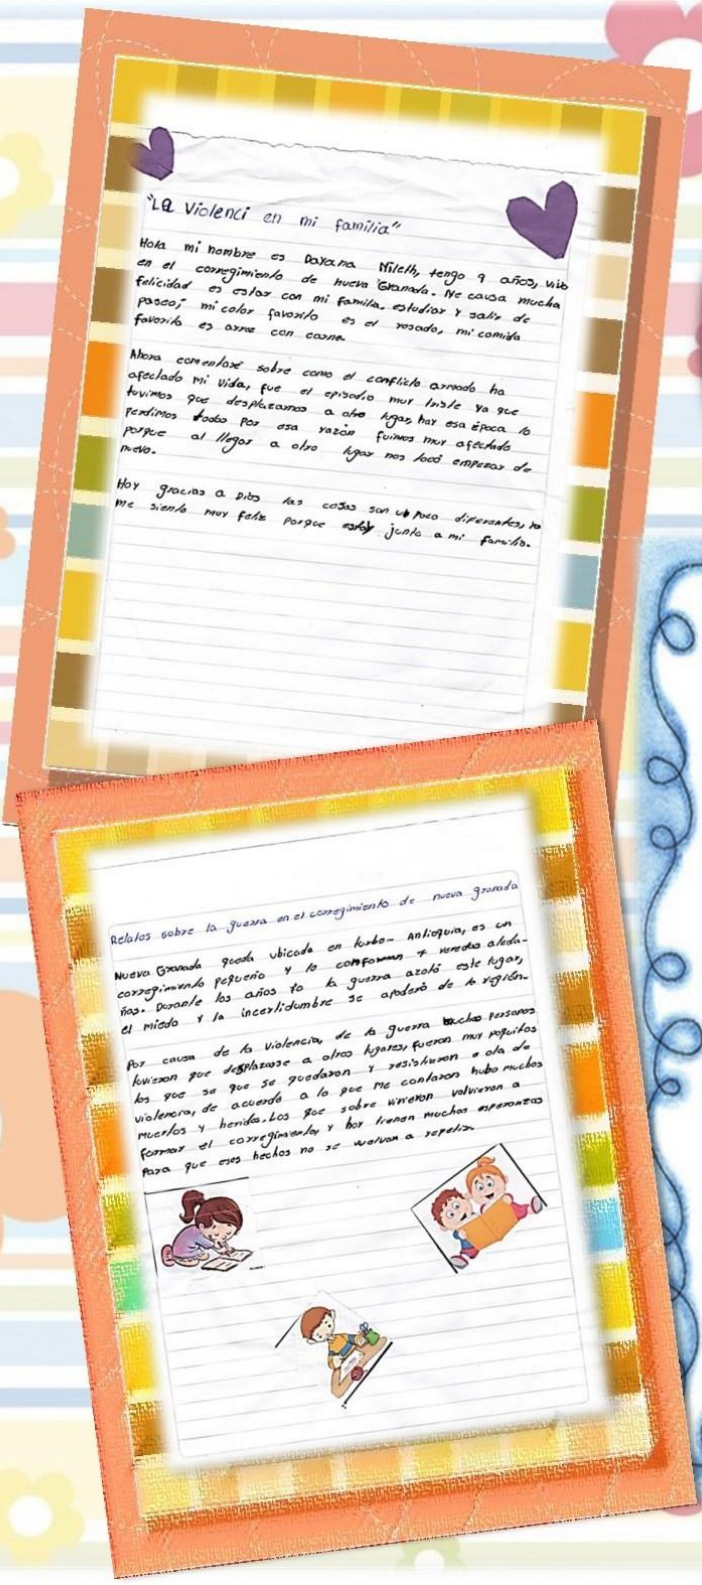 "La Violenci en mi familia"
Hola mi nombre es Dayana Mileth, tengo 9 años, vivo
en el corregimiento de nueva Granada. Me causa mucha
felicidad es estar con mi familia, estudiar y salir de
paseo, mi color favorito es el rosado, mi comida
favorita es arroz con carne.
Ahora comentaré sobre como el conflicto armado ha
afectado mi vida, fue el episodio muy triste ya que
tuvimos que desplazarnos a otro lugar, hay esa época lo
perdimos todo por esa razón fuimos muy afectado
porque al llegar a otro lugar nos tocó empezar de
nuevo.
Hoy gracias a Dios las cosas son un poco diferentes, yo
me siento muy feliz porque estoy junto a mi familia.
Relatos sobre la guerra en el corregimiento de nueva granada
Nueva Granada queda ubicada en turbo- Antioquia, es un
corregimiento pequeño y lo conforman 7 veredas aleda-
ñas. Durante los años 90 la guerra azoló este lugar,
el miedo y la incertidumbre se apoderó de la región.
Por causa de la violencia, de la guerra muchas personas
tuvieron que desplazarse a otros lugares, fueron muy poquitos
los que se que se quedaron y resistieron a ola de
violencia, de acuerdo a lo que me contaron hubo muchos
muertos y heridos. Los que sobre vivieron volvieron a
formar el corregimiento, y hoy tienen muchas esperanzas
para que esos hechos no se vuelvan a repetir.